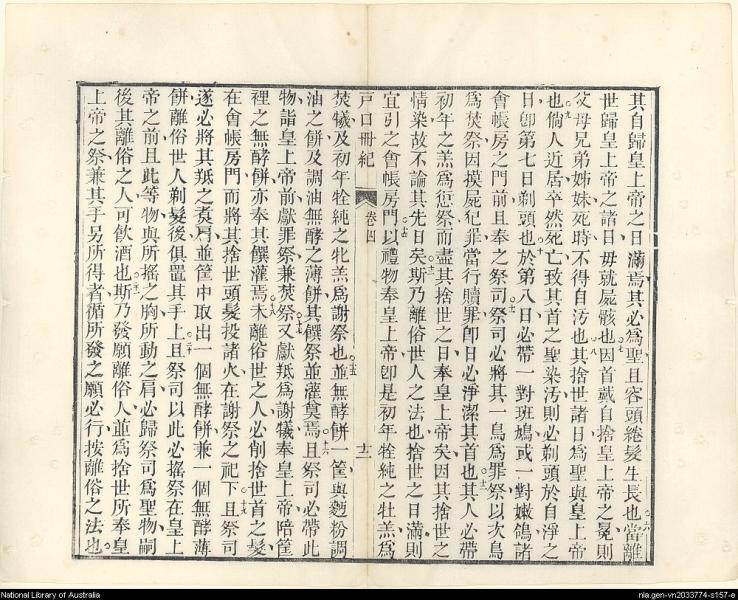 其自歸皇上帝之日滿焉其必爲聖且容頭綣髮生長也○六當離
世歸皇上帝之諸日毋就屍骸也○七因首戴自捨皇上帝之冕則
父母兄弟姊妹死時不得自汚也○八其捨世諸日爲聖與皇上帝
也○九倘人近居卒然死亡致其首之聖染汚則必剃頭於自淨之
日卽第七日剃頭也○十於第八日必帶一對班鳩或一對嫩鴿諸
會帳房之門前且奉之祭司○十一祭司必將其一鳥爲罪祭以次鳥
爲焚祭因摸屍犯罪當行贖罪卽日必淨潔其首也○十二其人必帶
初年之羔爲愆祭而盡其捨世之日奉皇上帝矣因其捨世之
情染故不論其先日矣○十三斯乃離俗世人之法也捨世之日滿則
宜引之會帳房門○十四以禮物奉皇上帝卽是初年牷純之牡羔爲
戶口冊紀 卷四 十二
焚犧及初年牷純之牝羔爲謝祭也○十五並無酵餅一筐與麵粉調
油之餅及調油無酵之薄餅其饌祭並灌奠焉○十六且祭司必帶此
物詣皇上帝前獻罪祭兼焚祭○十七又獻羝爲謝犧奉皇上帝陪筐
裡之無酵餅亦奉其饌灌焉○十八離俗世之人必削捨世首之髮
在會帳房門而將其捨世頭髮投諸火在謝祭之祀下○十九且祭司
遂必將其羝之煮肩並筐中取出一個無酵餅兼一個無酵薄
餅離俗世人剃髮後俱置其手上○二十且祭司以此必搖祭在皇上
帝之前且此等物與所搖之胸所動之肩必歸祭司爲聖物嗣
後其離俗之人可飲酒也○二十一斯乃發願離俗人並爲捨世所奉皇
上帝之祭兼其手另所得者循所發之願必行按離俗之法也
National Library of Australia
nla.gen-vn2033774-s157-e